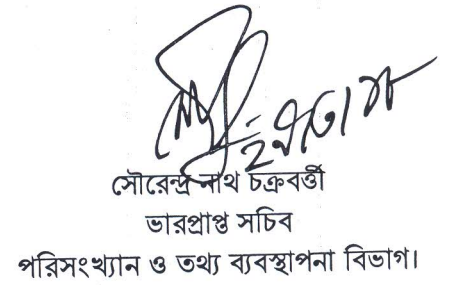 সৌরেন্দ্র নাথ চক্রবর্ত্তী
ভারপ্রাপ্ত সচিব
পরিসংখ্যান ও তথ্য ব্যবস্থাপনা বিভাগ।